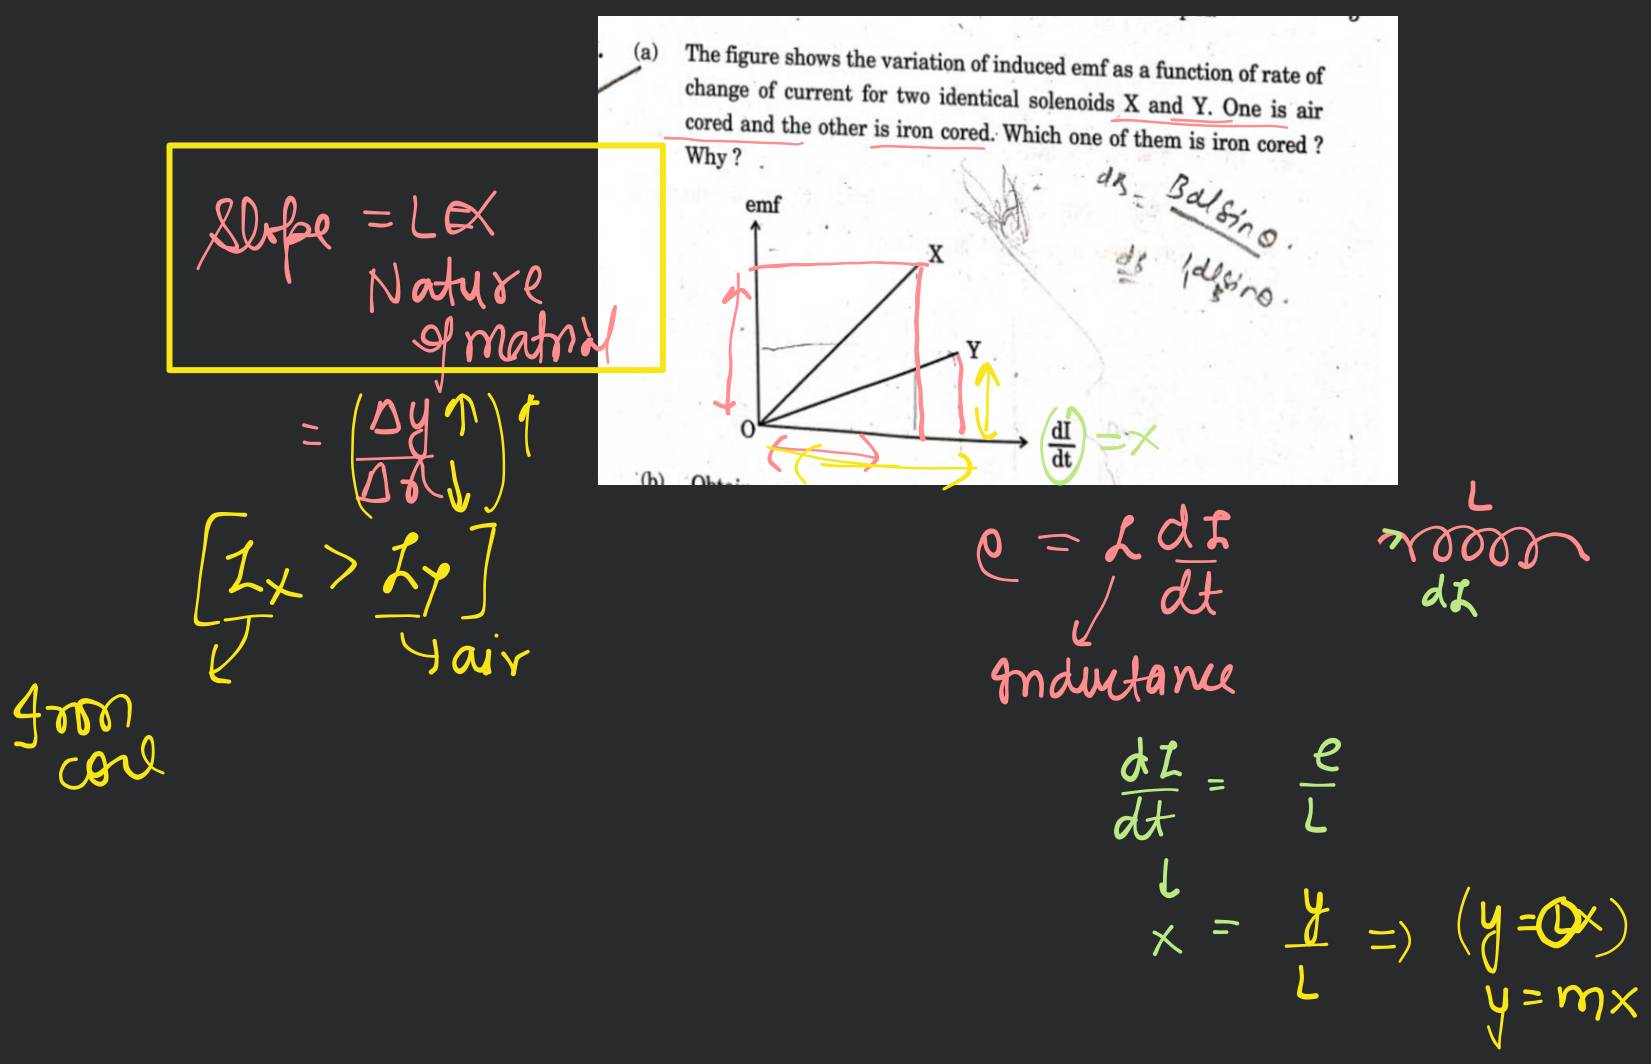 (a) The figure shows the variation of induced emf as a function of rate of
change of current for two identical solenoids X and Y. One is air
cored and the other is iron cored. Which one of them is iron cored ?
Why ?
dB = Bdl sinθ.
Idl sinθ.
emf
X
Y
O
dI
dt
= x
(b)
Slope = L ∝
Nature
of matrial
= (Δy ↑
Δx ↓) ↑
[Lx > Ly]
Iron
core
air
e = L dI
dt
Inductance
L
dI
dI = e
dt L
x = y => (y = Lx)
L
y = mx